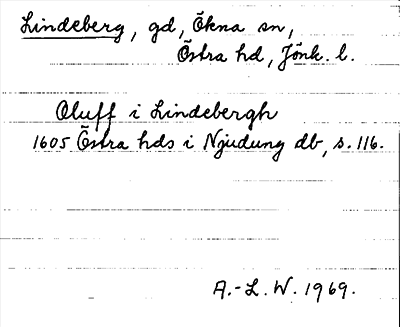 Lindeberg, gd, Ökna sn,
Östra hd, Jönk. l.
Oluff i Lindebergh
1605 Östra hds i Njudung db, s. 116.
A.-L. W. 1969.